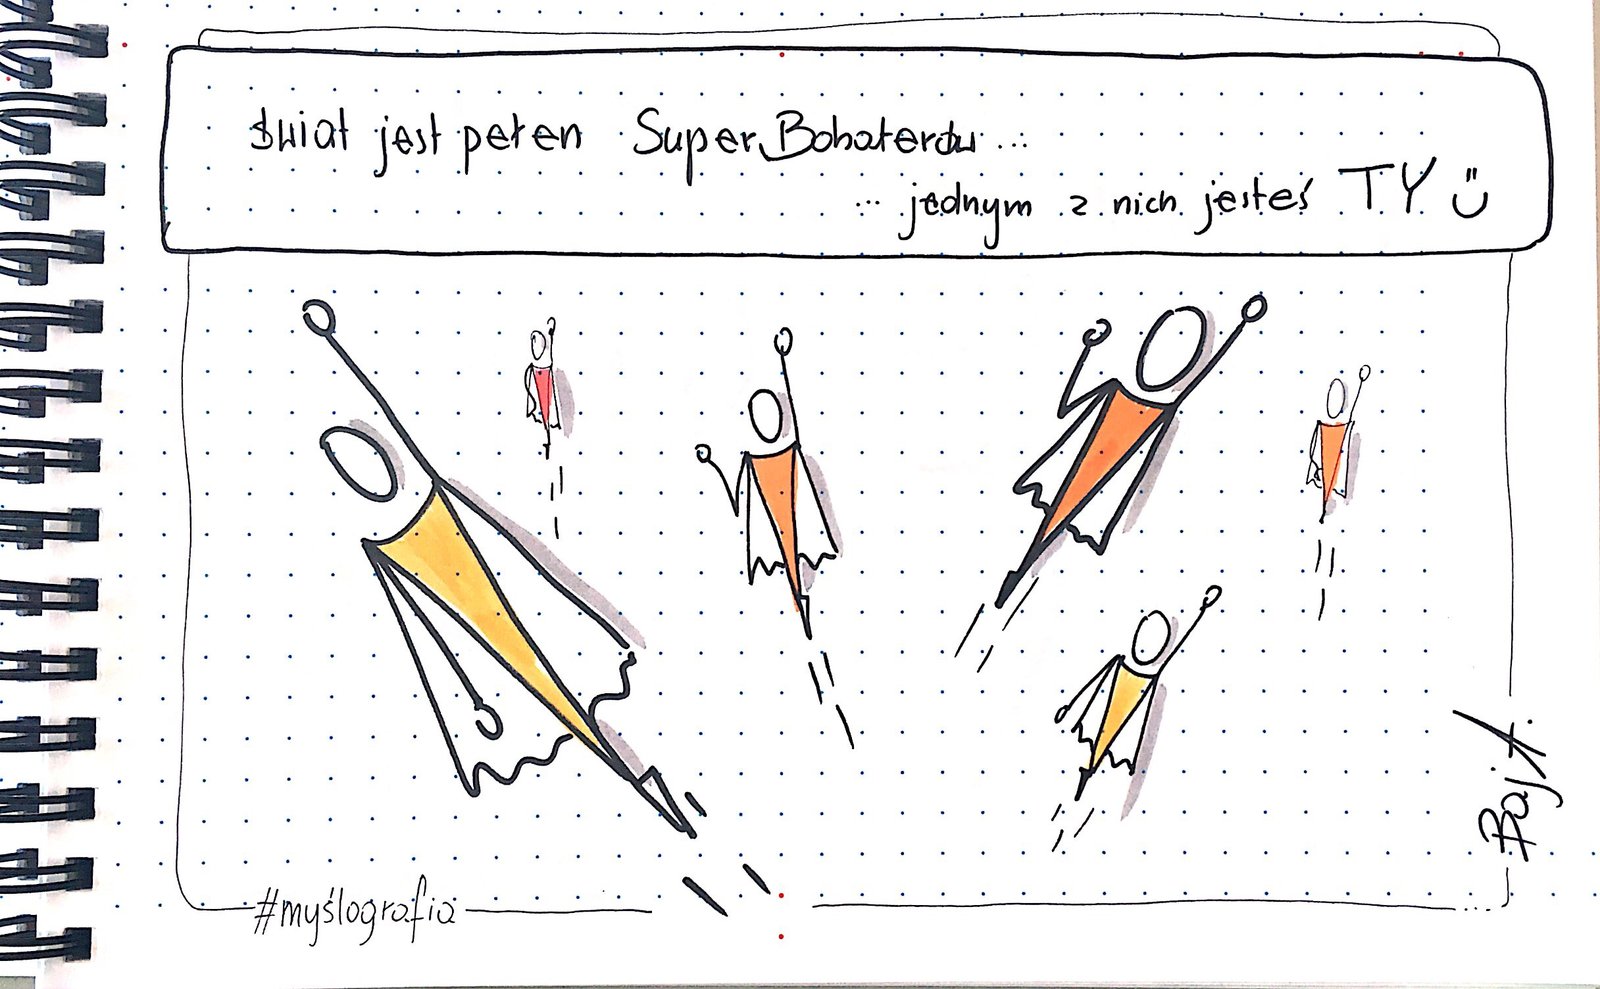 świat jest pełen SuperBohaterów...
... jednym z nich jesteś TY
#myślografia
Bajt.